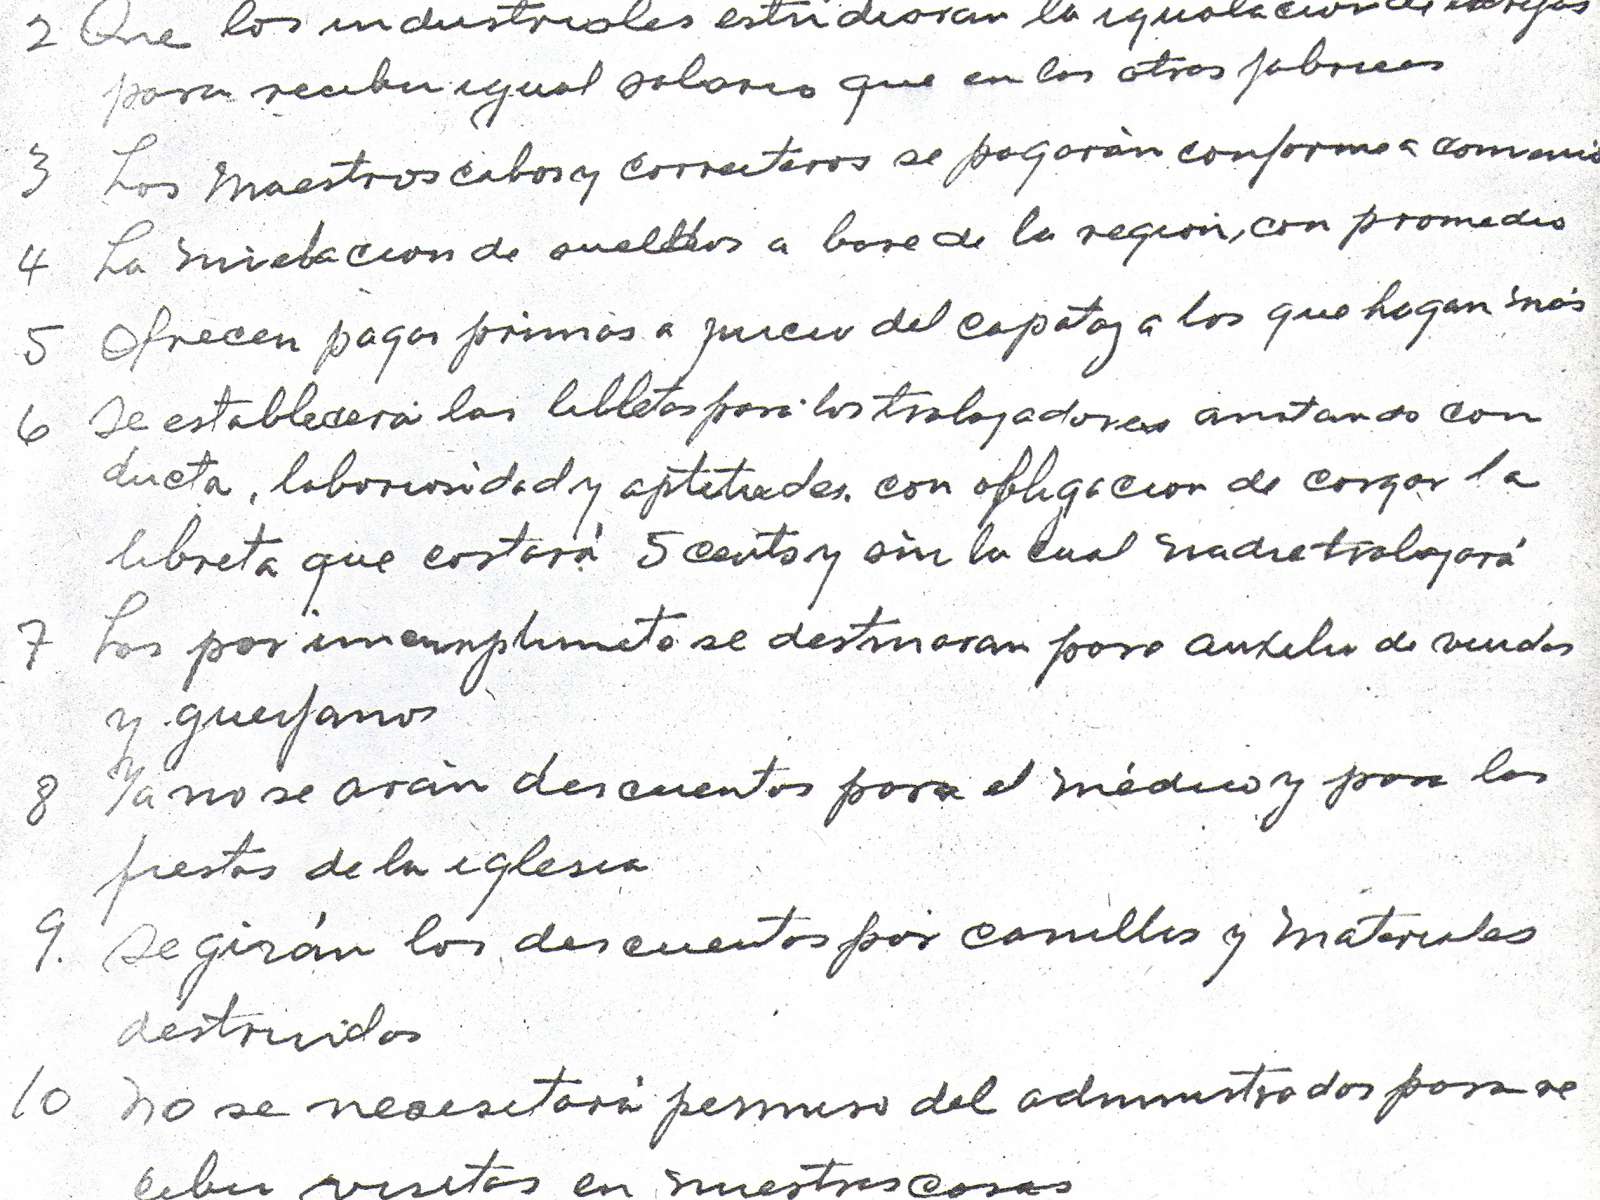 2 Que los industriales estudiaran la igualacion de
para recibir igual salario que en las otras fabricas
3 Los Maestros cabos y correiteros se pagarán conforme a convenio
4 La nivelacion de sueldos a base de la region, con promedio
5 Ofrecen pagar primas a juicio del capataz a los que hagan más
6 Se establecerá las libletas para los trabajadores anotando con
ducta, laboriosidad y aptitudes. con obligacion de cargar la
libreta que costará 5 cents y sin la cual nadie trabajará
7 Las por incumplimeto se destinaran para auxilio de viudas
y guerfanos
8 Ya no se arán descuentos para el médico y para las
fiestas de la iglesia
9. Segirán los descuentos por canillas y materiales
destruidos
10 No se necesitará permiso del administrador para re
cibir visitas en nuestras casas